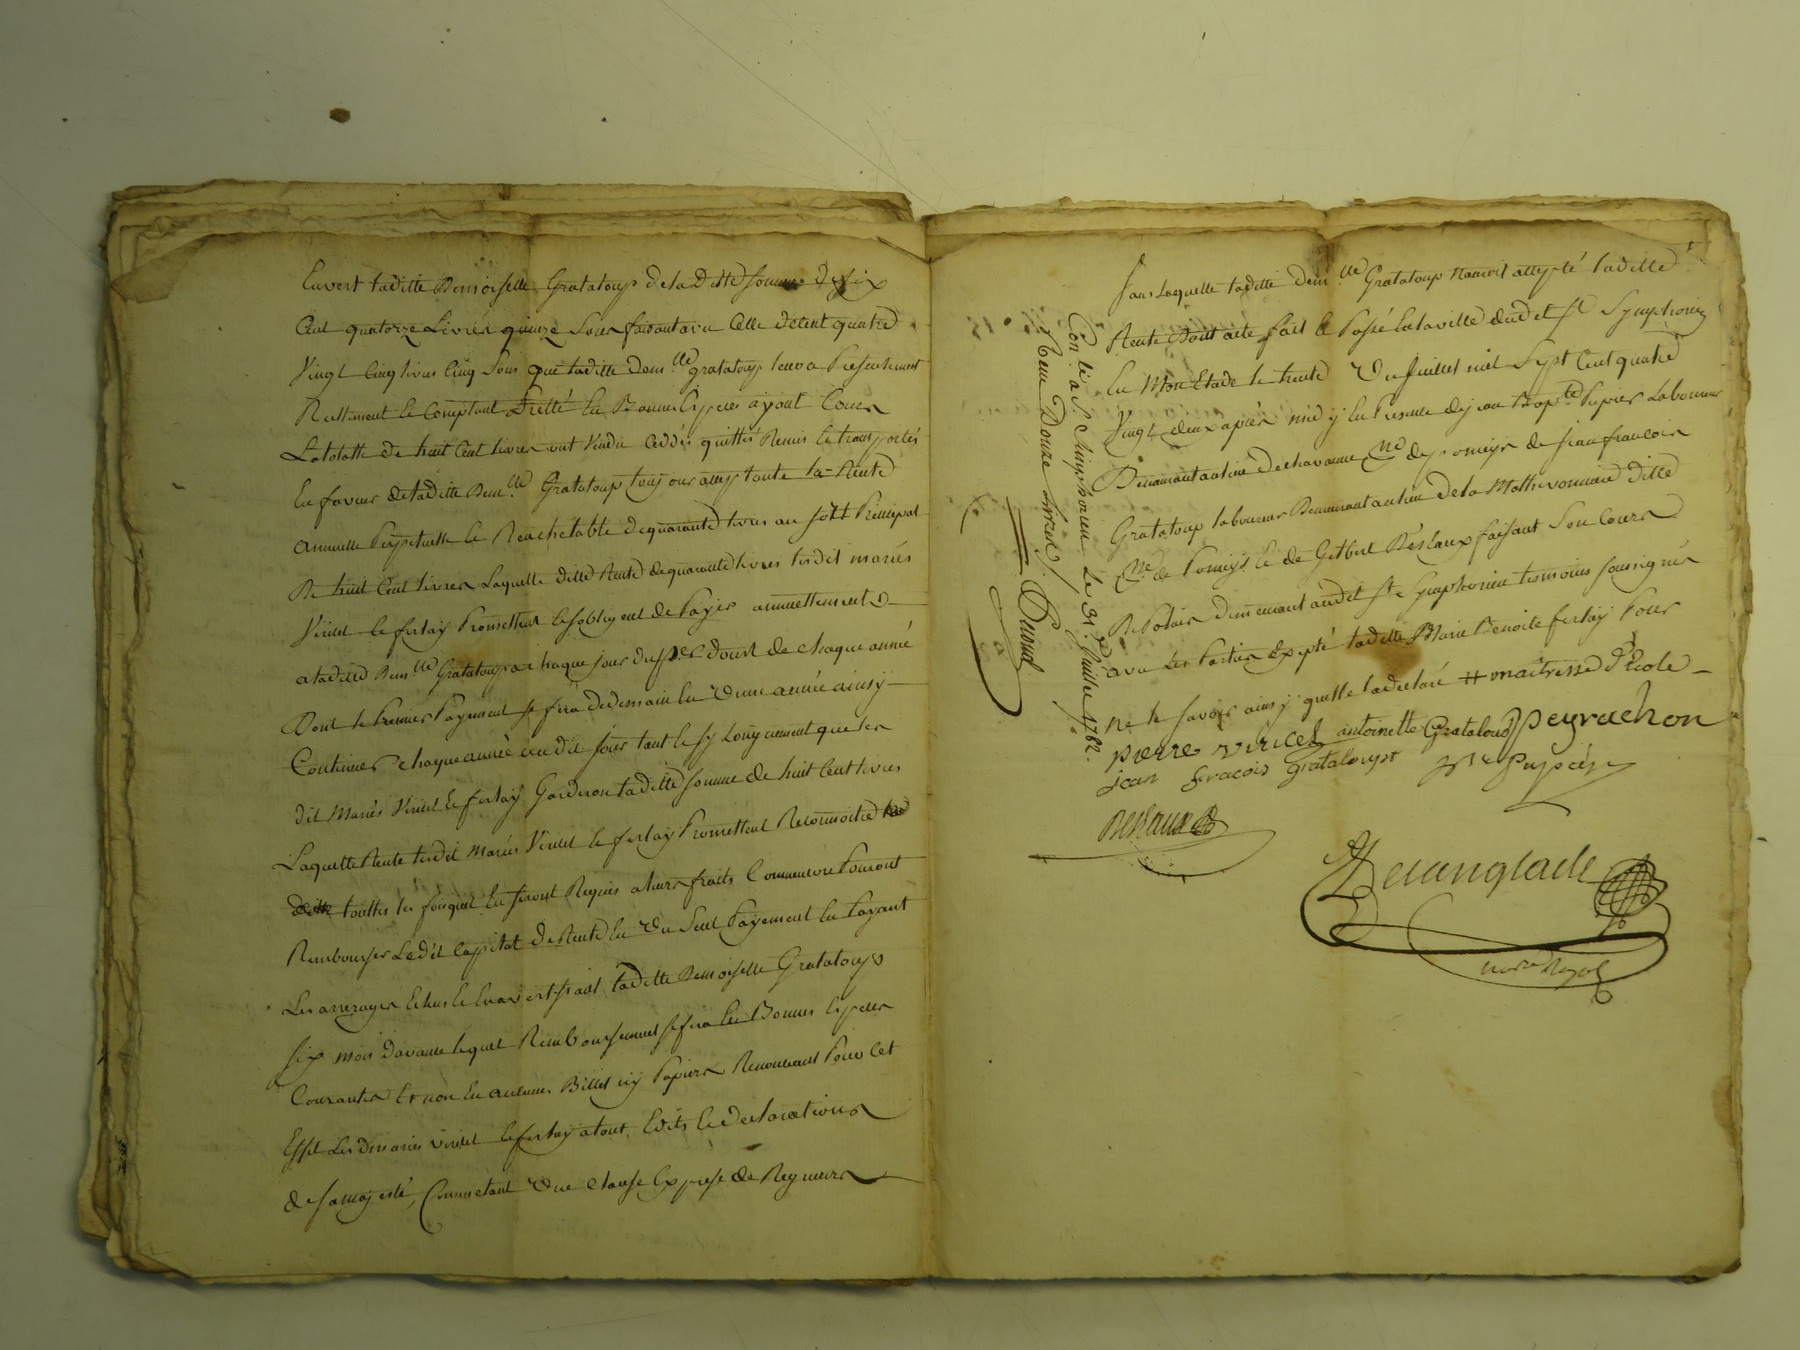 Envert laditte Demoiselle Grataloup de laditte somme de six
Cent quatorze Livres quinze Sous faisant avec Celle de Cent quatre
Vingt Cinq livres Cinq Sous que laditte dem.lle grataloup leur a Presentement
Réellement et Comptant en Bonnes Especes ayant Cours
La totalle de huit Cent livres ont Vendu Ceddés quittés Remis et transportés
En faveur de laditte Dem.lle Grataloup toujours acceptante la Rente
annuelle Perpetuelle et Rachetable de quarante livres au sort Principal
De huit Cent livres Laquelle ditte Rente de quarante livres lesdit mariés
Viricel et ferlay Promettent et sobligent de Payer annuellement
a laditte Dem.lle Grataloup a Chaque jour de de Chaque année
Dont le Premier Payement se fera de demain En Une année ainsy
Continuer Chaque année audit jour tant et sy Longuement que les
dit Mariés Viricel et ferlay Garderon laditte somme de huit Cent livres
Laquelle Rente lesdit Mariés Viricel et ferlay Promettent Reconnoitre
touttes les fois quil En seront Requis a leurs fraits Comme ore Pouront
Rembourser Ledit Capital de Rente En Un Seul Payement En Payant
Les arrerages Echus et En avertissant laditte Demoiselle Grataloup
six mois davance lequel Remboursement se fera En Bonnes Especes
Courantes Et non En aucuns Billet ny Papiers Renonceant Pour Cet
Effet Les dit mariés Viricel et ferlay a tout Edits et declarations
de sa majesté, Comme étant Une Clause Expresse de Rigueur
sans Laquelle laditte dem.lle Grataloup Nauroit accepté laditte
Rente Dont acte fait et Passé En la ville dudit S.t Symphorien
En Mon Etude le trente Un Juillet mil Sept Cent quatre
Vingt deux après midy En Presence de jean Bap.te Pupier Laboureur
Demeurant au lieu de Chavanne P.sse de pomeys de jean francois
Grataloup laboureur Demeurant au lieu de la Mathevonnaire ditte
P.sse de Pomeys et de Gilbert Deslaux faisant Son Cours
De Palais demeurant audit S.t Symphorien temoins soussignés
avec les Parties Excepté laditte Marie Benoite ferlay Pour
Ne le Savoir ainsy quelle la declaré # maitresse d'Ecole
pierre viricel antoinette Grataloud Peyrachon
jean fracois grataloupt J B.te Pupier
Deslaux
Delanglade
no.re Royal
Con.lé a S. Simphorien Le 31.e Juillet 1782.
Reçu Douze Livres.
Durand